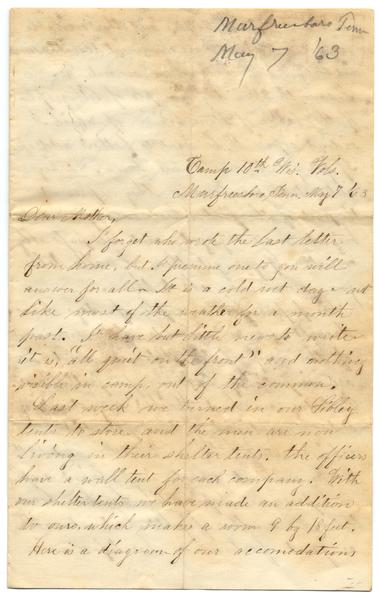 Murfreesboro Tenn
May 7 '63
Camp 10th Wis. Vols.
Murfreesboro, Tenn. May 7 '63
Dear Mother,
I forget who wrote the last letter
from home, but I presume one to you will
answer for all. It is a cold wet day - not
like most of the weather for a month
past. I have but little news to write
it is "all quiet on the front" and nothing
visible in camp, out of the common.
Last week we turned in our Sibley
tents to store, and the men are now
living in their shelter tents. The officers
have a wall tent for each company. With
our shelter tents we have made an addition
to ours, which makes a room 9 by 18 feet.
Here is a diagram of our accomodations